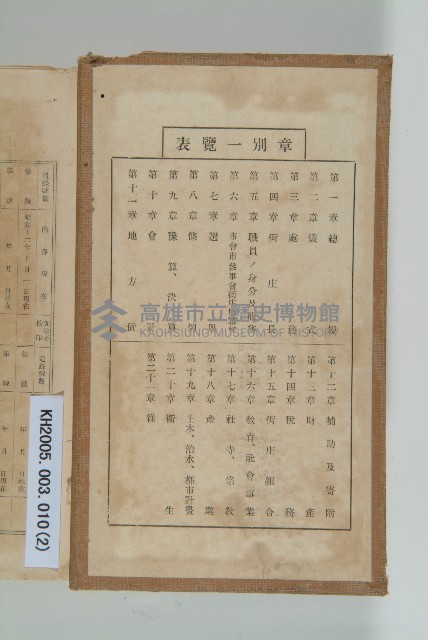 章別一覽表
第一章 總
第二章 儀式
第三章 處務
第四章 街庄長
第五章 職員ノ身分及服務
第六章 市會市參事會街庄協議會
第七章 選擧
第八章 條例
第九章 豫算、決算
第十章 會計
第十一章 地方債
第十二章 補助及寄附
第十三章 財產
第十四章 稅務
第十五章 街庄組合
第十六章 敎育、社會事業
第十七章 社寺、宗敎
第十八章 產業
第十九章 土木、治水、都市計畫
第二十章 衞生
第二十一章 雜
高雄市立歷史博物館
KAOHSIUNG MUSEUM OF HISTORY
KH2005.003.010(2)
內容現在
年 月 日現在
年 月 日現在